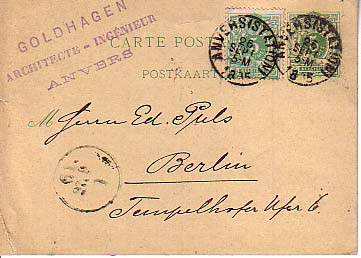 GOLDHAGEN
ARCHITECTE - INGÉNIEUR
ANVERS
CARTE POSTALE
POSTKAART
ANVERS (STATION)
ANVERS (STATION)
M Herrn Ed. Puls
Berlin
Tempelhofer Ufer 6